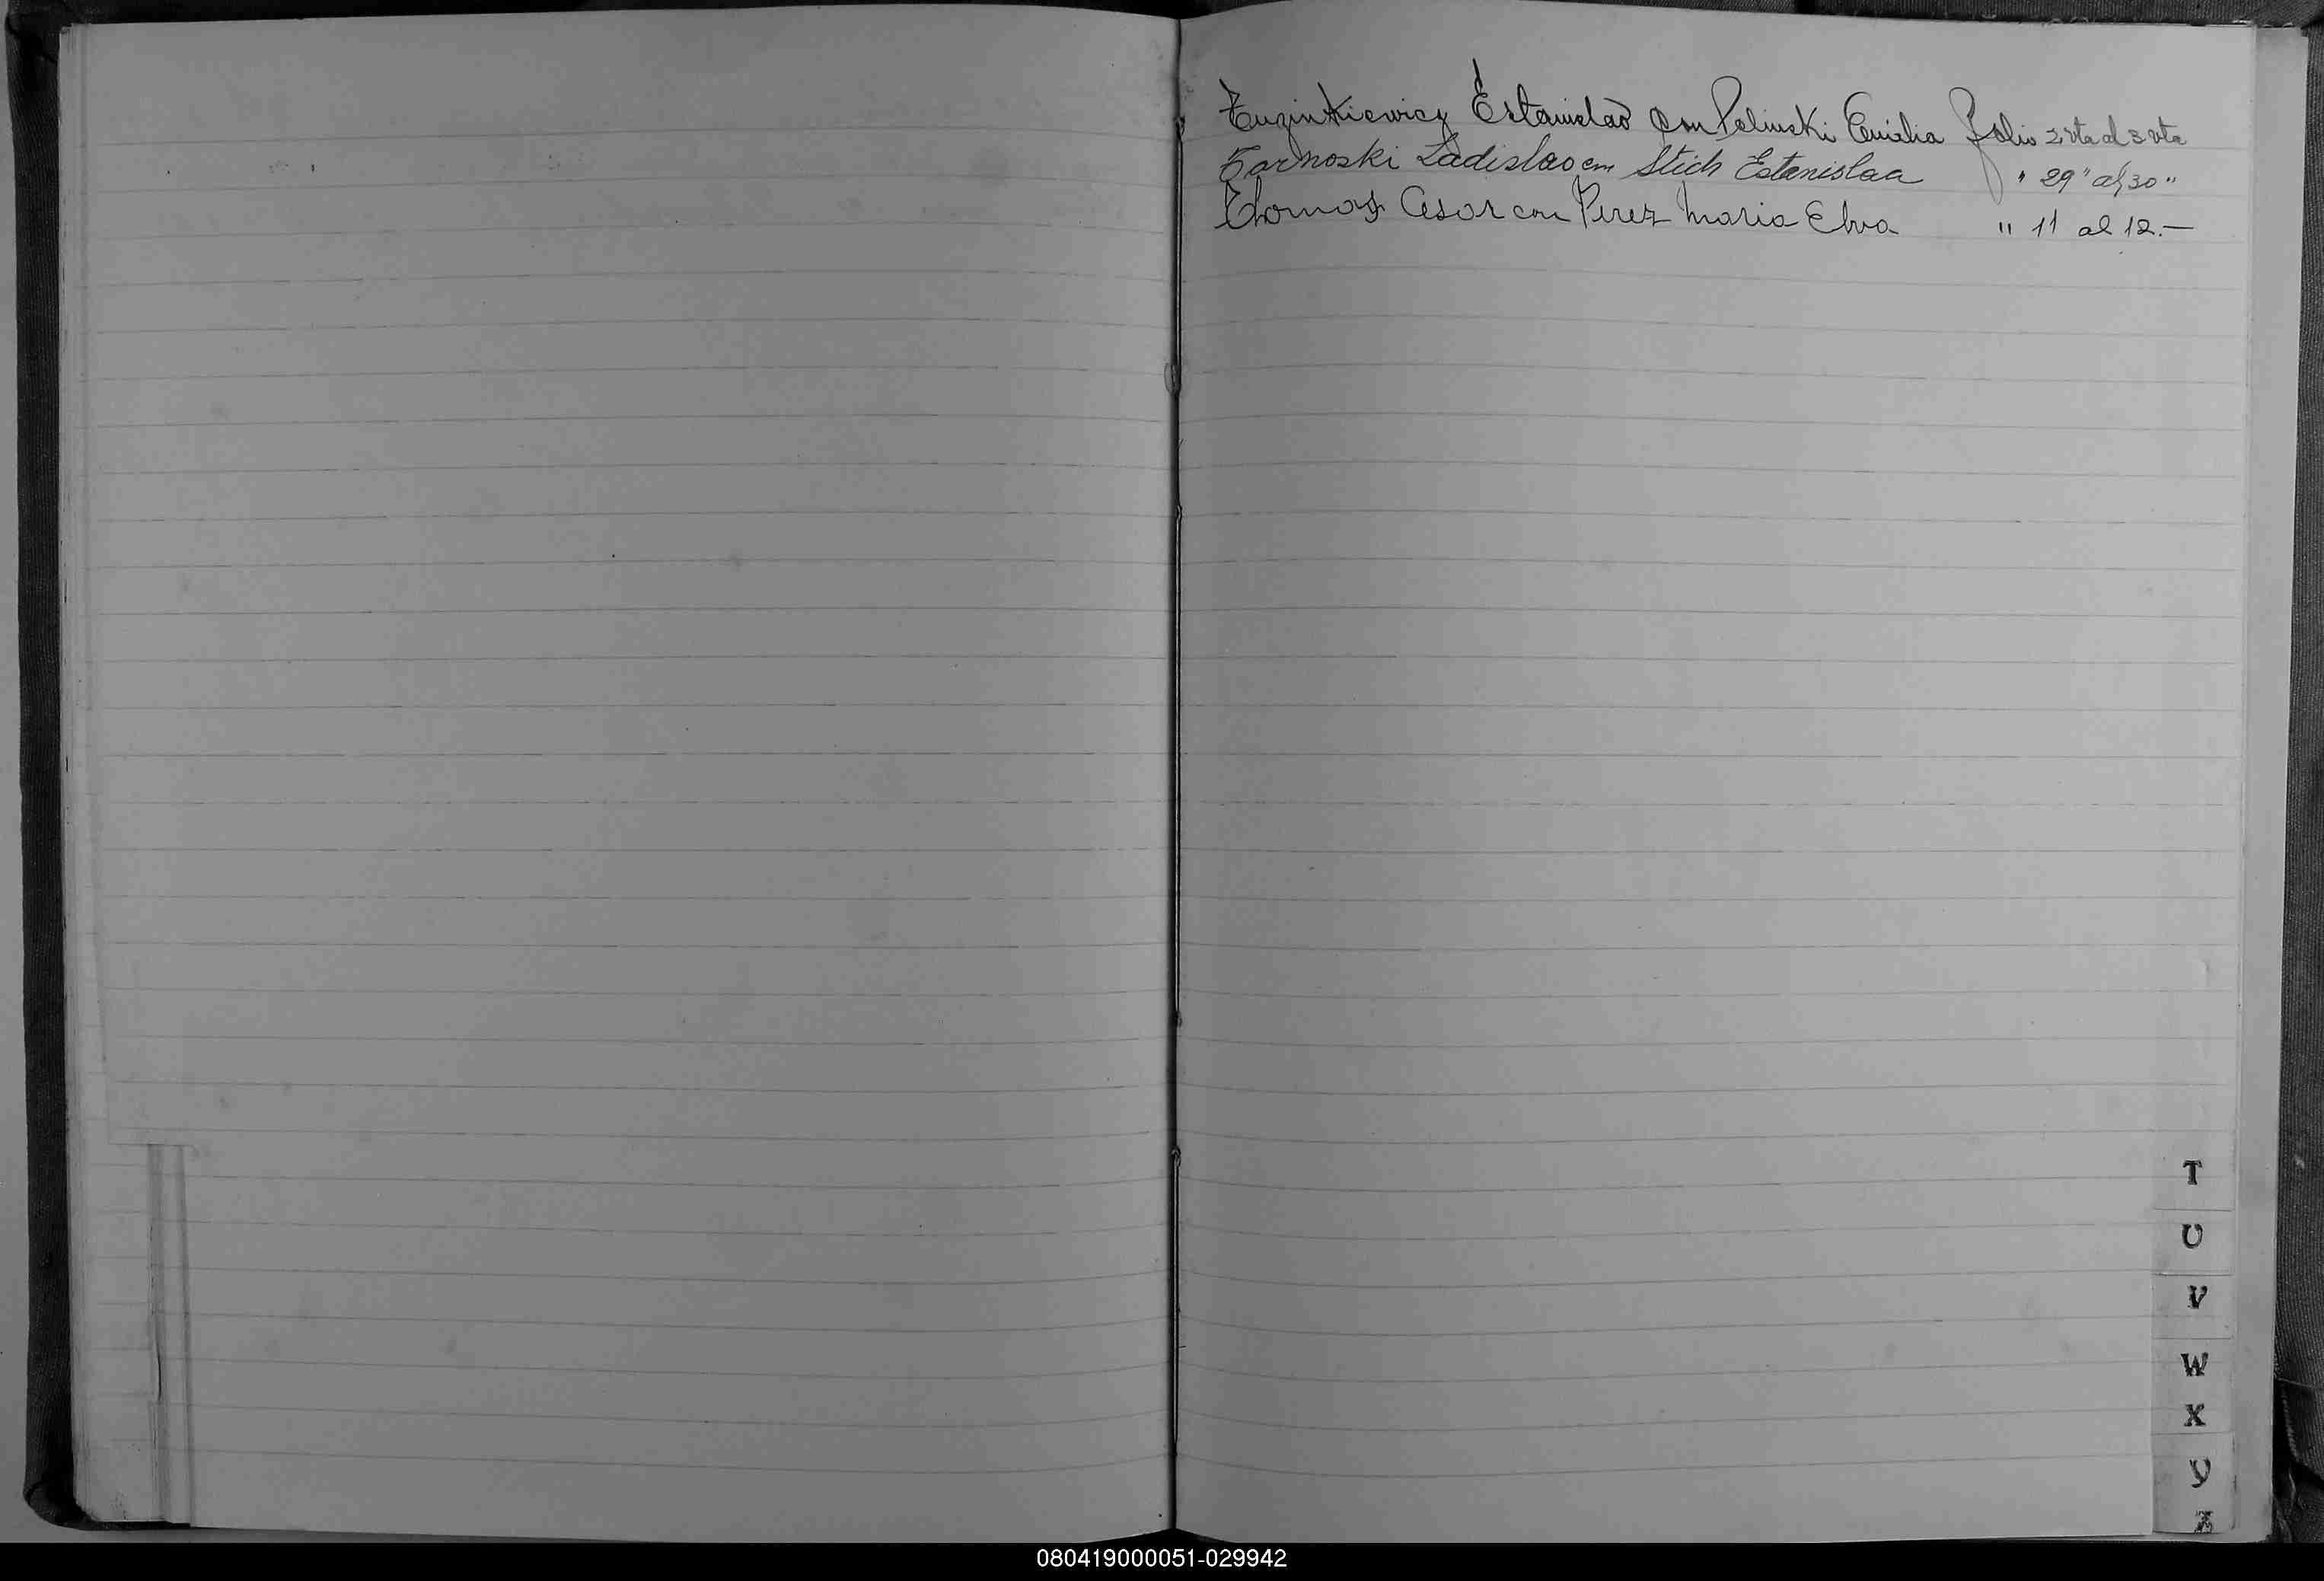 Tuzinkiewicz Estanislao con Polinski Emilia Folio 2 vta al 3 vta
Tarnoski Ladislao con Stich Estanislaa " 29 " al 30 "
Thomas Cesar con Perez Maria Elva " 11 al 12.—
T
U
V
W
X
Y
Z
080419000051-029942